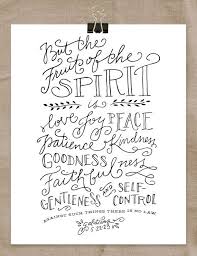 But the
Fruit of the
SPIRIT
is
love Joy PEACE
Patience Kindness
GOODNESS
Faithfulness
GENTLENESS & SELF
CONTROL
AGAINST SUCH THINGS THERE IS NO LAW
5:22-23